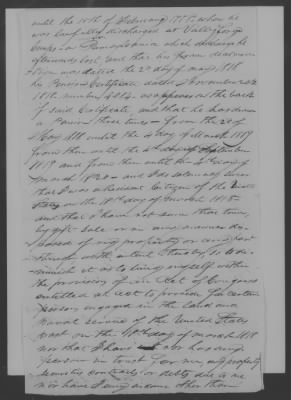 until the 10th of February 1778, when he
was lawfully discharged at Valley forge
Camps in Pennsylvania which discharge he
afterwards lost, and that his former declaration
was dated the 2d day of may 1818
his Pension Certificate dated November 2d
1818 number as appears on the back
of said Certificate, and that he has drawn
a Pension three times - from the 2d of
May 1818 until the 4 day of March 1819
from then until the 4th day of September
1819 and from then until the 4th day of
March 1820 - and I do solemnly swear
that I was a Resident Citizen of the United
States on the 18th day of March 1818 -
and that I have not since that time,
by gift sale or in any manner dis-
posed of my property or any part
thereof with intent thereby so to di-
minish it as to bring myself within
the provisions of an Act of Congress
entitled an act to provide for certain
persons engaged in the land and
naval service of the United States
past on the 18th day of march 1818
nor that I have nor has any
person in trust for me any property
securities contracts or debts due to me
nor have I any income other than